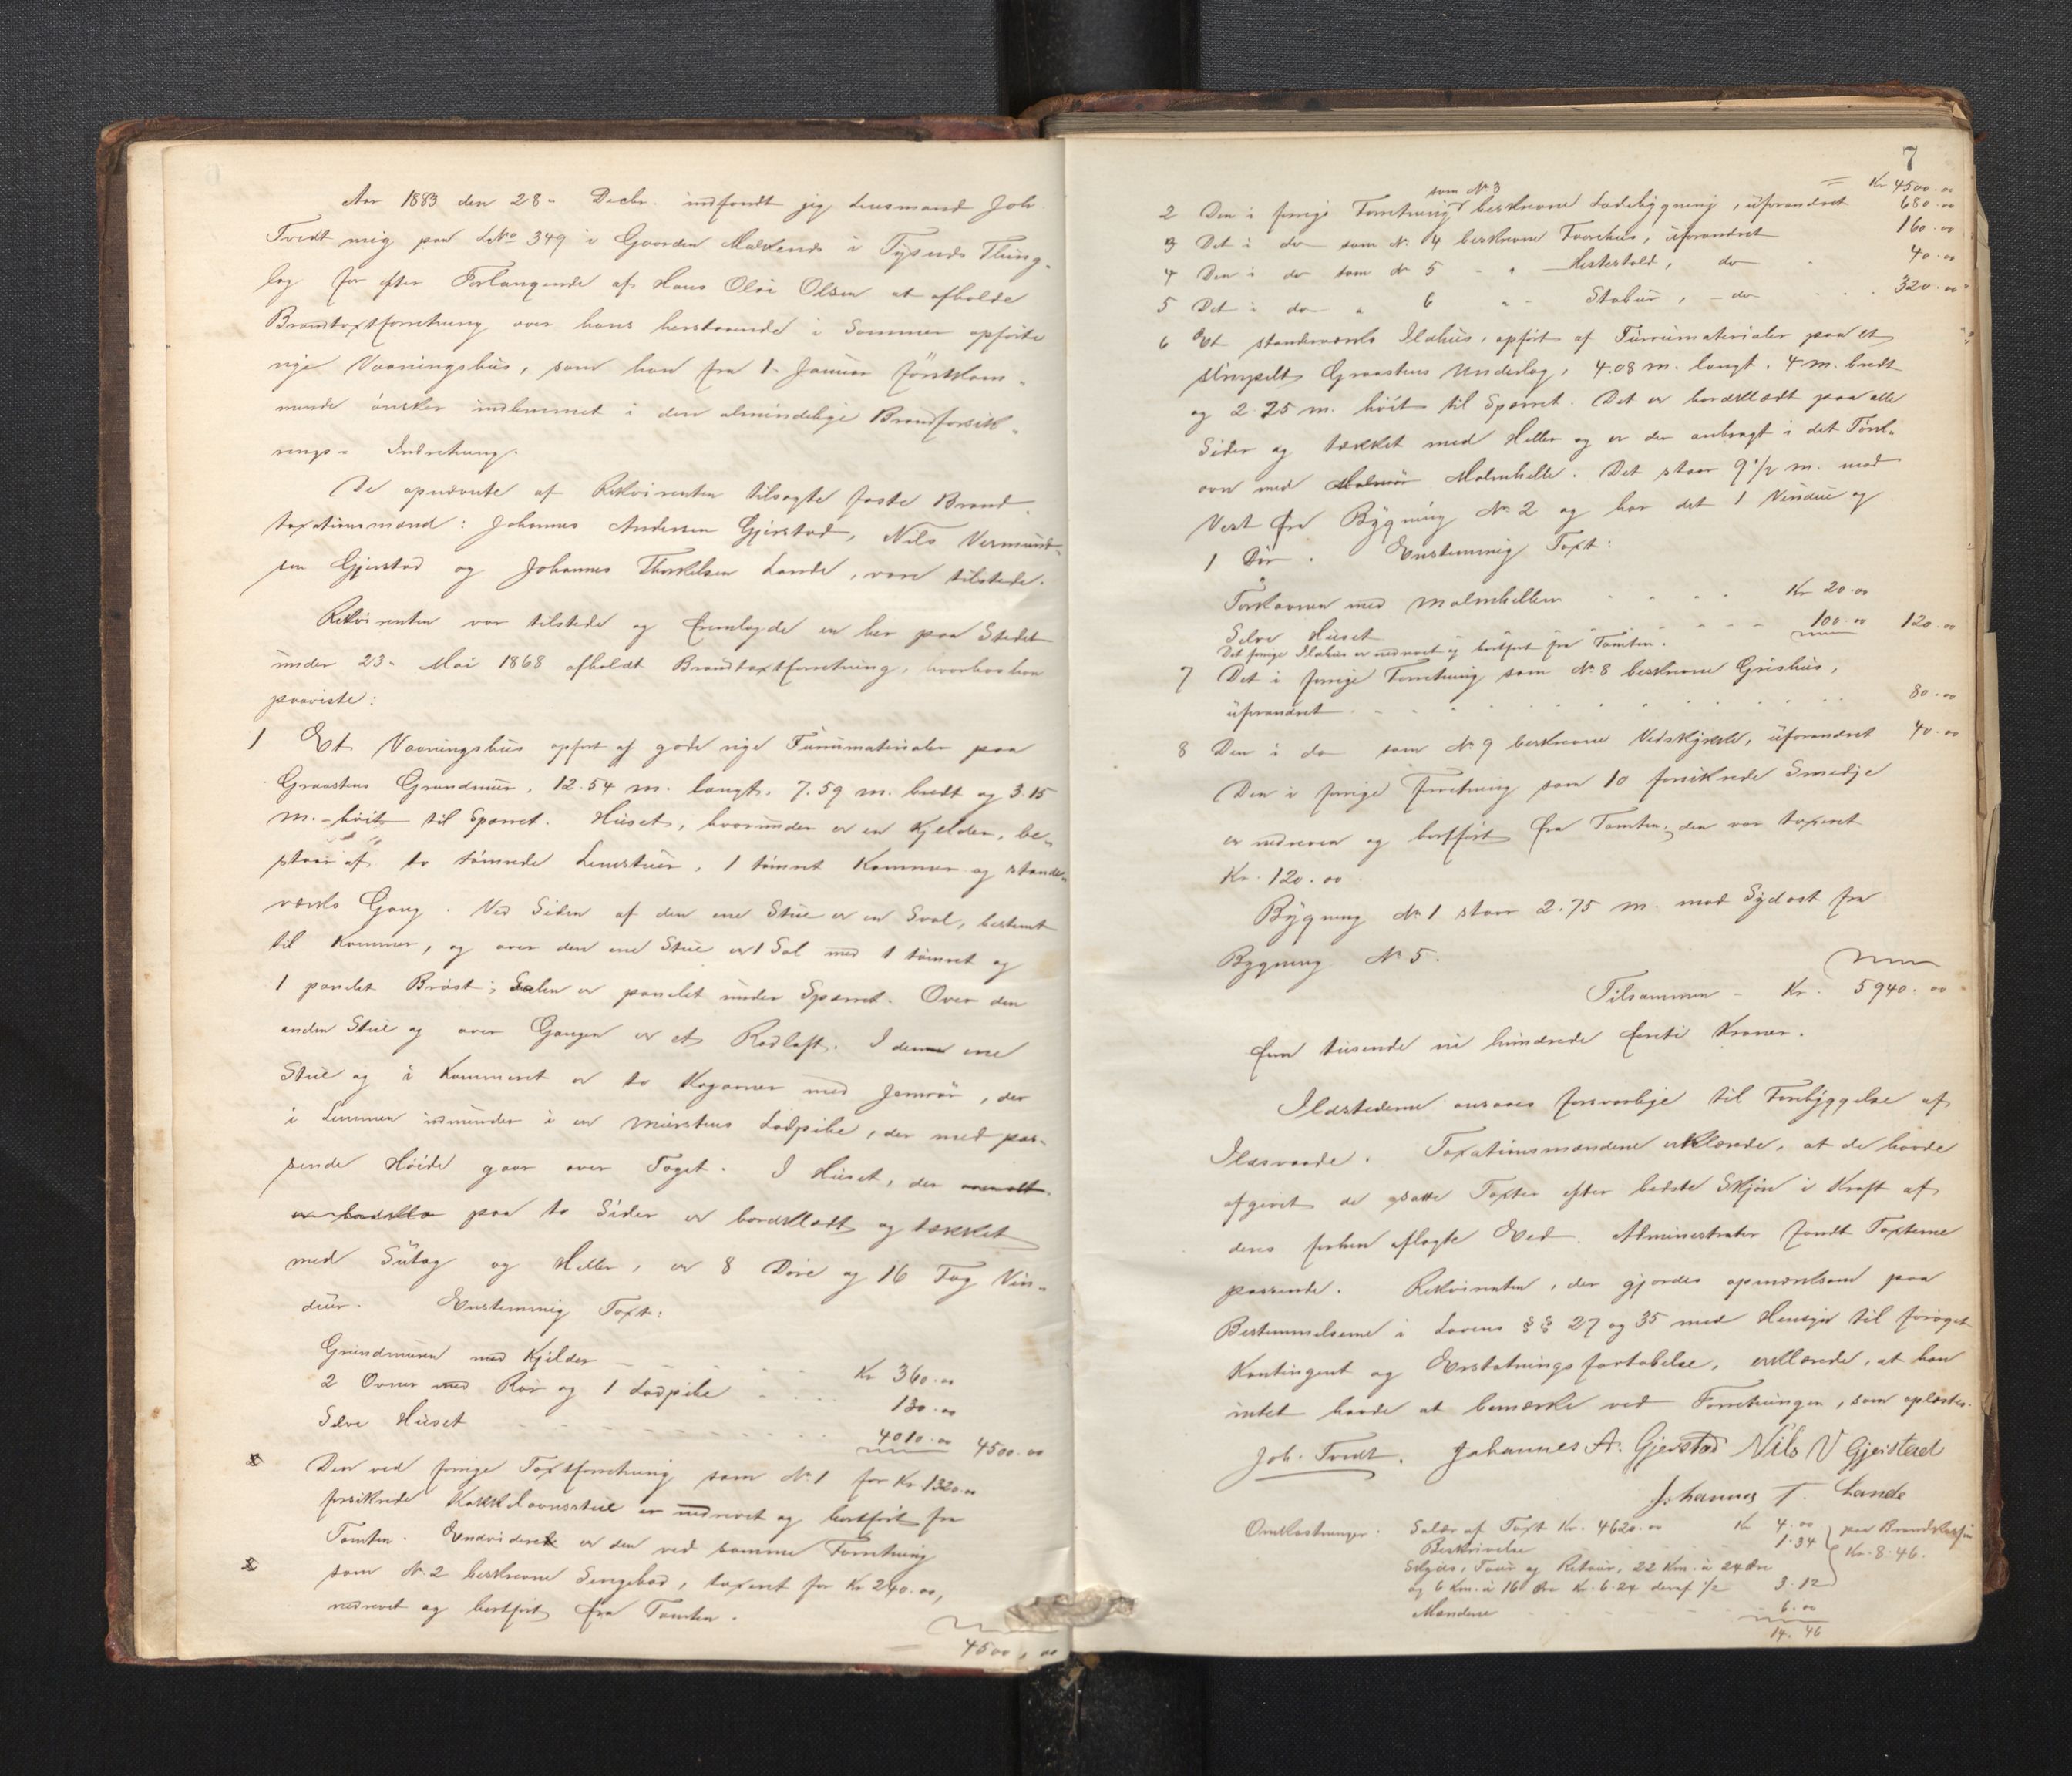 Aar 1883 den 28. Decbr. indfandt jeg Lensmand Joh.
Tvedt mig paa LNo 349 i Gaarden Malkenes i Tysnes Thing-
lag for efter Forlangende af Hans Olai Olsen at afholde
Brandtaxtforretning over hans herstaaende i Sommer opførte
nye Vaaningshus, som han fra 1. Januar førstkom-
mende ønsker indlemmet i den almindelige Brandforsik-
rings-Indretning.
De opnævnte af Rekvirenten tilsagte faste Brand-
taxationsmænd: Johannes Andersen Gjerstad, Nils Vermund-
sen Gjerstad og Johannes Thorkildsen Lande, vare tilstede.
Rekvirenten var tilstede og fremlagde en her paa Stedet
under 23. Mai 1868 afholdt Brandtaxtforretning, hvorhos han
paaviste:
1 Et Vaaningshus opført af gode nye Furumaterialer paa
Graastens Grundmur, 12.54 m. langt, 7.59 m. bredt og 3.15
m. høit til Sparret. Huset, hvorunder er en Kjelder, be-
staar af to tømrede Lemstuer, 1 tømret Kammer og stander-
værks Gang. Ved Siden af den ene Stue er en Sval, bestemt
til Kammer, og over den ene Stue er 1 Sal med 1 tømret og
1 panelet Brøst; Salen er panelet under Sparret. Over den
anden Stue og over Gangen er et Rodloft. I den ene
Stue og i Kammeret er to Kogovner med Jernrør, der
i Lemmen indmunder i en Murstens Ladpibe, der med pas-
sende Høide gaar over Taget. I Huset, der
paa to Sider er bordklædt og tækket
med Sutag og Heller, er 8 Døre og 16 Fag Vin-
duer. Enstemmig Taxt:
Grundmuren med Kjelder Kr 360.00
2 Ovner med Rør og 1 Ladpibe 130.00
Selve Huset 4010.00 4500.00
Den ved forrige Taxtforretning som No 1 for Kr 1320.00
forsikrede Kakkelovnsstue er nedrevet og bortført fra
Tomten. Endvidere er den ved samme Forretning
som No 2 beskrevne Sengebod, taxeret for Kr 240.00,
nedrevet og bortført fra Tomten.
4500,00
7
= Kr 4500.00
2 Den i forrige Forretning som No 3 beskrevne Ladebygning, uforandret 680.00
3 Det i do som No 4 beskrevne Faarehus, uforandret 160.00
4 Den i do som No 5 " " Hestestald, do 40.00
5 Det i do " 6 " " Stabur, do 320.00
6 Et standerværks Ildhus, opført af Furumaterialer paa et
simpelt Graastens Underlag, 4.08 m. langt, 4 m. bredt
og 2.25 m. høit til Sparret. Det er bordklædt paa alle
Sider og tækket med Heller og er der anbragt i det Tørk-
ovn med Malmhelle. Det staar 9 1/2 m. mod
Vest fra Bygning No 2 og har det 1 Vindue og
1 Dør. Enstemmig Taxt:
Tørkovnen med Malmhellen Kr 20.00
Selve Huset 100.00 120.00
Det forrige Ildhus er nedrevet og bortført fra Tomten.
7 Det i forrige Forretning som No 8 beskrevne Grishus,
uforandret 80.00
8 Den i do som No 9 beskrevne Vedskykkle, uforandret 40.00
Den i forrige Forretning som 10 forsikrede Smedje
er nedreven og bortført fra Tomten; den var taxeret
Kr. 120.00
Bygning No 1 staar 2.75 m. mod Sydost fra
Bygning No 5.
Tilsammen - Kr. 5940.00
fem tusende ni hundrede firti Kroner.
Ildstederne ansaaes forsvarlige til Forebyggelse af
Ildsvaade. Taxationsmændene erklærede, at de havde
afgivet de ansatte Taxter efter bedste Skjøn i Kraft af
deres forhen aflagte Eed. Administrator fandt Taxterne
passende. Rekvirenten, der gjordes opmærksom paa
Bestemmelserne i Lovens §§ 27 og 35 med Hensyn til forøget
Kontingent og Erstatningsfortabelse, erklærede, at han
intet havde at bemærke ved Forretningen, som oplæstes.
Joh. Tvedt. Johannes A. Gjerstad Nils V Gjerstad
Johannes T. Lande
Omkostninger: Salær af Taxt Kr. 4620.00 Kr 4.00
Beskrivelse 1.34
Skyds, Tour og Retour, 22 Km. à 24 Øre
og 6 Km. à 16 Øre Kr. 6.24 deraf 1/2 3.12
paa Brandkassen
Kr. 8.46.
Mændene 6.00
14.46